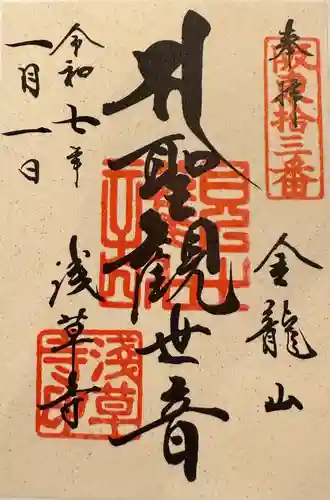 奉拝
坂東拾三番
金龍山
聖観世音
浅草寺
令和七年
一月一日
浅草